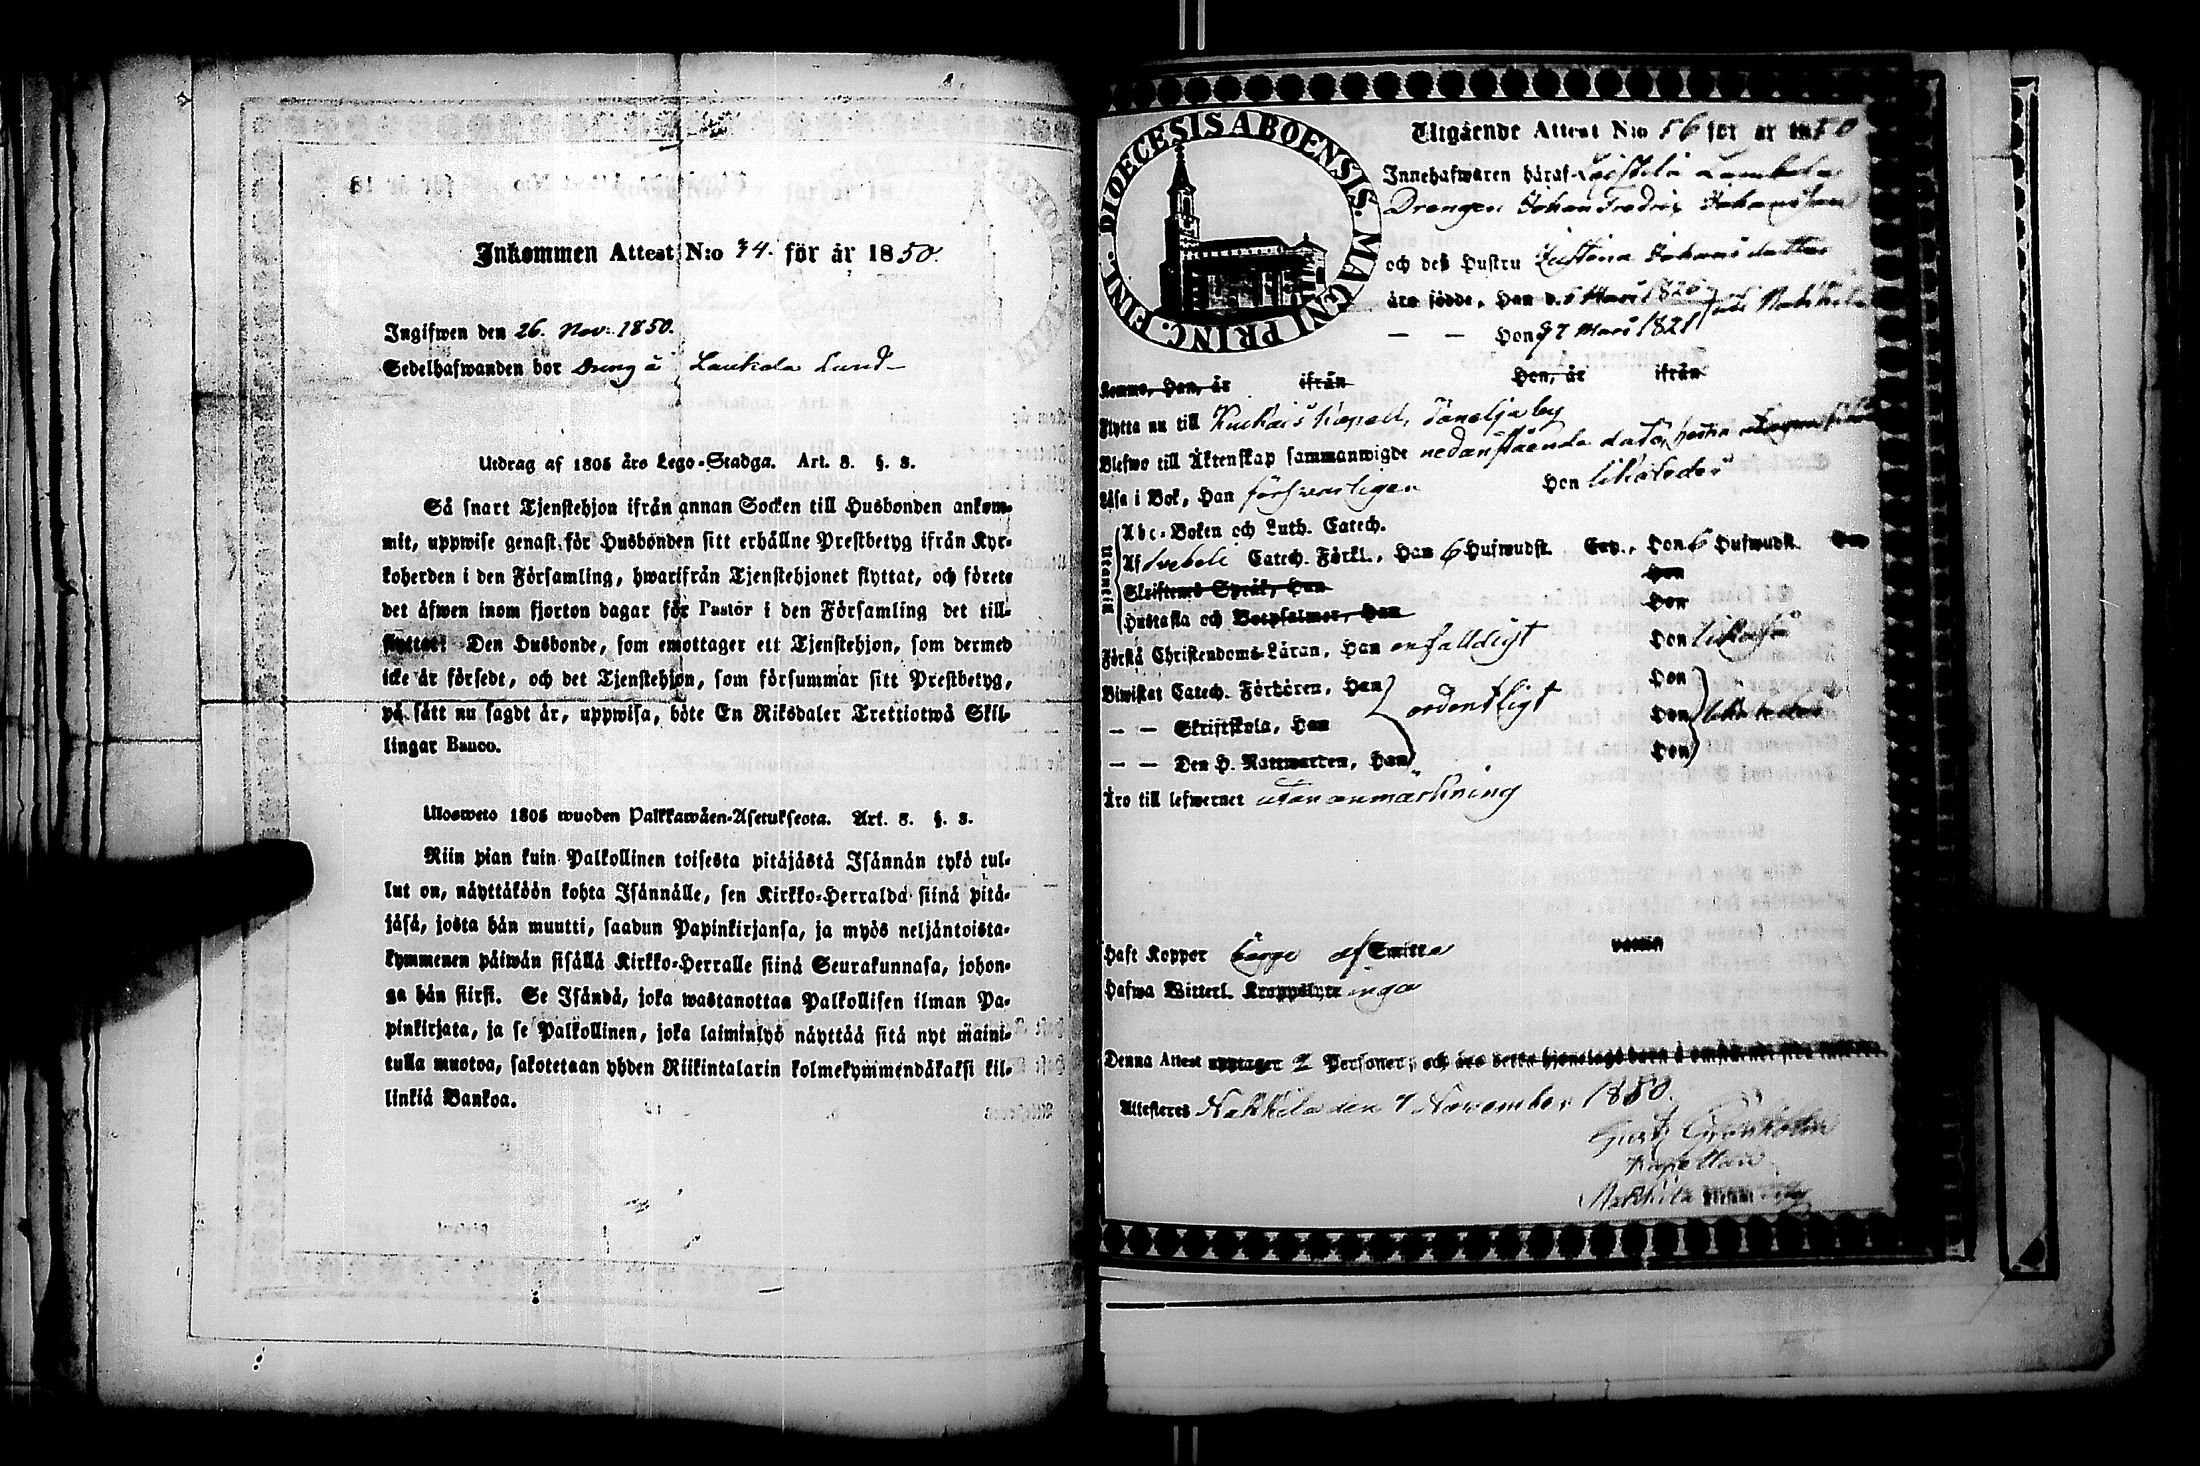 Inkommen Attest N:o 34. för år 1850.
Ingifwen den 26. Nov. 1850.
Sedelhafwanden bor Dreng å Laukola Lund
Utdrag af 1805 års Lego-Stadga. Art. 8. §. 8.
Så snart Tjenstehjon ifrån annan Socken till Husbonden ankom-
mit, uppwise genast för Husbonden sitt erhållne Prestbetyg ifrån Kyr-
koherden i den Församling, hwarifrån Tjenstehjonet flyttat, och förete
det åfwen inom fjorton dagar för Pastor i den Församling det till-
flyttat! Den Husbonde, som emottager ett Tjenstehjon, som dermed
icke är försedt, och det Tjenstehjon, som försummar sitt Prestbetyg,
på sätt nu sagdt är, uppwisa, böte En Riksdaler Trettiotwå Skil-
lingar Banco.
Ulosweto 1805 wuoden Palkkawäen-Asetuksesta. Art. 8. §. 8.
Niin pian kuin Palkollinen toisesta pitäjästä Isännän tykö tul-
lut on, näyttäköön kohta Isännälle, sen Kirkko-Herralda siinä pitä-
jäsä, josta hän muutti, saadun Papinkirjansa, ja myös neljäntoista-
kymmenen päiwän sisällä Kirkko-Herralle siinä Seurakunnasa, johon-
ga hän siirsi. Se Isändä, joka wastanottaa Palkollisen ilman Pa-
pinkirjata, ja se Palkollinen, joka laiminlyö näyttää sitä nyt maini-
tulla muotoa, sakotetaan yhden Riikintalarin kolmekymmendäkaksi kil-
linkiä Bankoa.
DIOECESIS ABOENSIS. MAGNI PRINC. FINL.
Utgående Attest N:o 56 för år 1850
Innehafwaren häraf
Drengen Johan Fredric Johansson
och deß Hustru Justina Johansdotter
äro födde, Han d. Mars 1820
— — Hon d 27 Mars 1821 uti Nakkila
Komne, Han, år ifrån Hon, år ifrån
Flytta nu till Kapell, by
Blefwo till Äktenskap sammanwigde nedanstående dato,
Läsa i Bok, Han försvarligen Hon likaledes
Utantill
Abc-Boken och Luth. Catech.
Af Svebeli Catech. Förkl., Han 6 Hufwudst. Hon 6 Hufwudst.
Skriftens Språk, Han Hon
Hustafla och Botpsalmer, Han Hon
Förstå Christendoms-Läran, Han enfalldigt Hon likaså
Biwistat Catech. Förhören, Han Hon
— — Skriftskola, Han ordentligt Hon likaledes
— — Den H. Nattwarden, Han Hon
Äro till lefwernet utan anmärkning
Haft Kopper begge af Smitta
Hafwa Witterl. Kroppslyte inga
Denna Attest upptager 2 Personer,
Attesteras Nakkila den 7 November 1850.
Gust. Grönholm
Kapellan
Nakkila